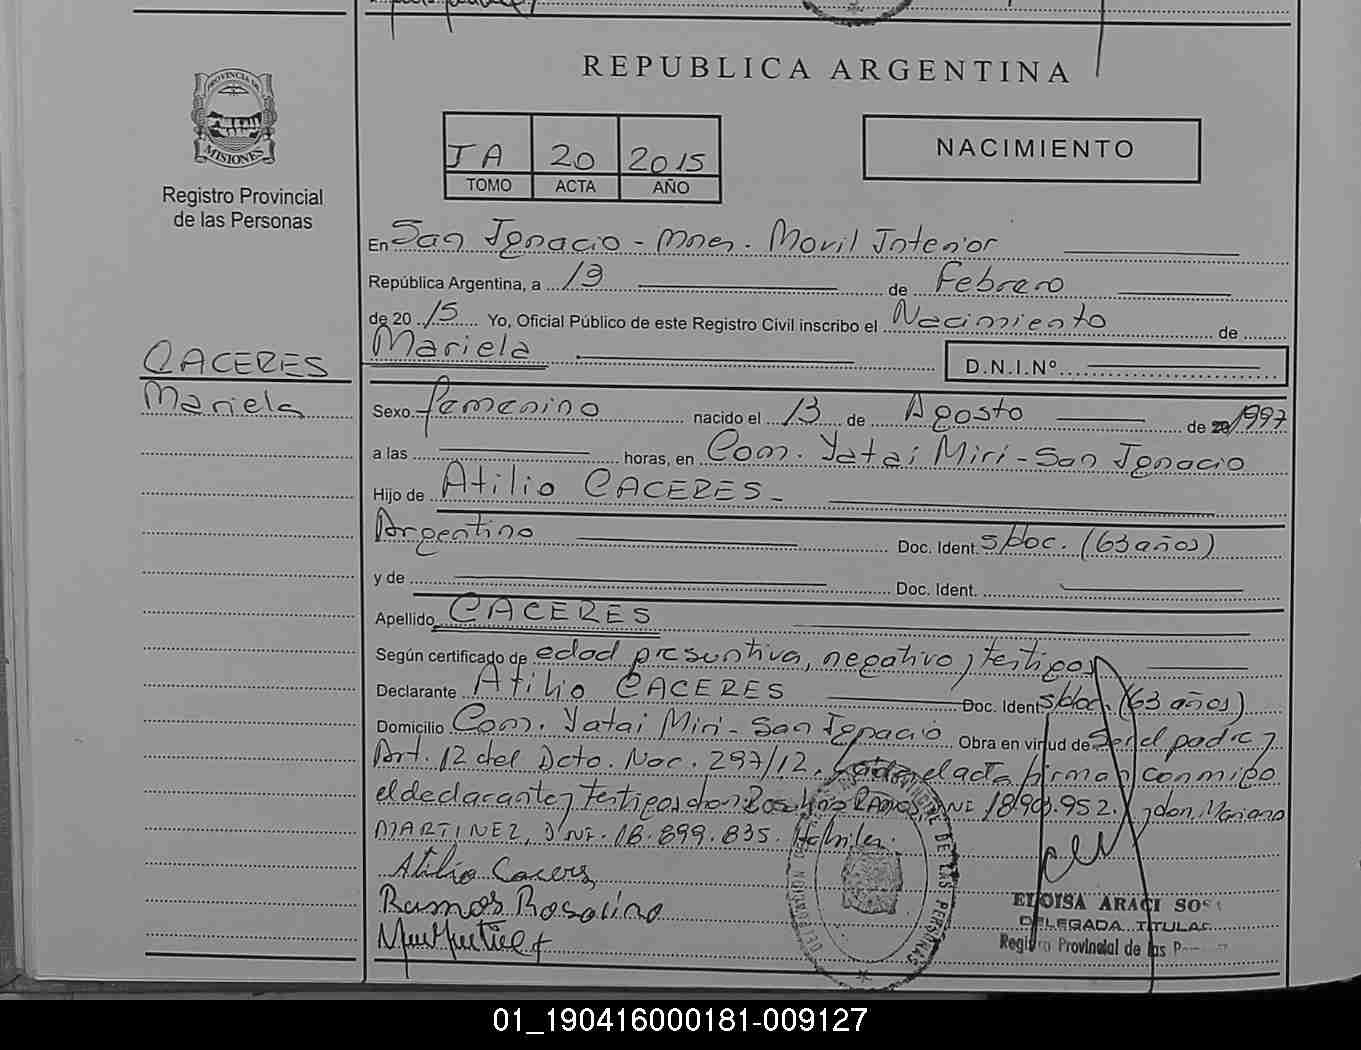 REPUBLICA ARGENTINA
PROVINCIA DE
MISIONES
Registro Provincial
de las Personas
IA 20 2015
TOMO ACTA AÑO
NACIMIENTO
En San Ignacio - Mnes. Movil Interior
República Argentina, a 19 de Febrero
de 2015 Yo, Oficial Público de este Registro Civil inscribo el Nacimiento de
Mariela D.N.I.Nº
CACERES
Mariela
Sexo femenino nacido el 13 de Agosto de 1997
a las horas, en Com. Yatai Miri - San Ignacio
Hijo de Atilio CACERES -
Argentino Doc. Ident. s/doc. (63 años)
y de Doc. Ident.
Apellido CACERES
Según certificado de edad presuntiva, negativo y testigos
Declarante Atilio CACERES Doc. Ident s/doc. (63 años)
Domicilio Com. Yatai Miri - San Ignacio Obra en virtud de Ser el padre y
Art. 12 del Dcto. Nac. 297/12. el acta firman conmigo
el declarante y testigos don Rosalino RAMOS, DNI 18.903.952. y don Mariano
MARTINEZ, DNI. 18.899.835. Habiles.
Atilio Caceres
Ramos Rosalino
ELOISA ARACI SOSA
DELEGADA TITULAR
Registro Provincial de las P
01_190416000181-009127